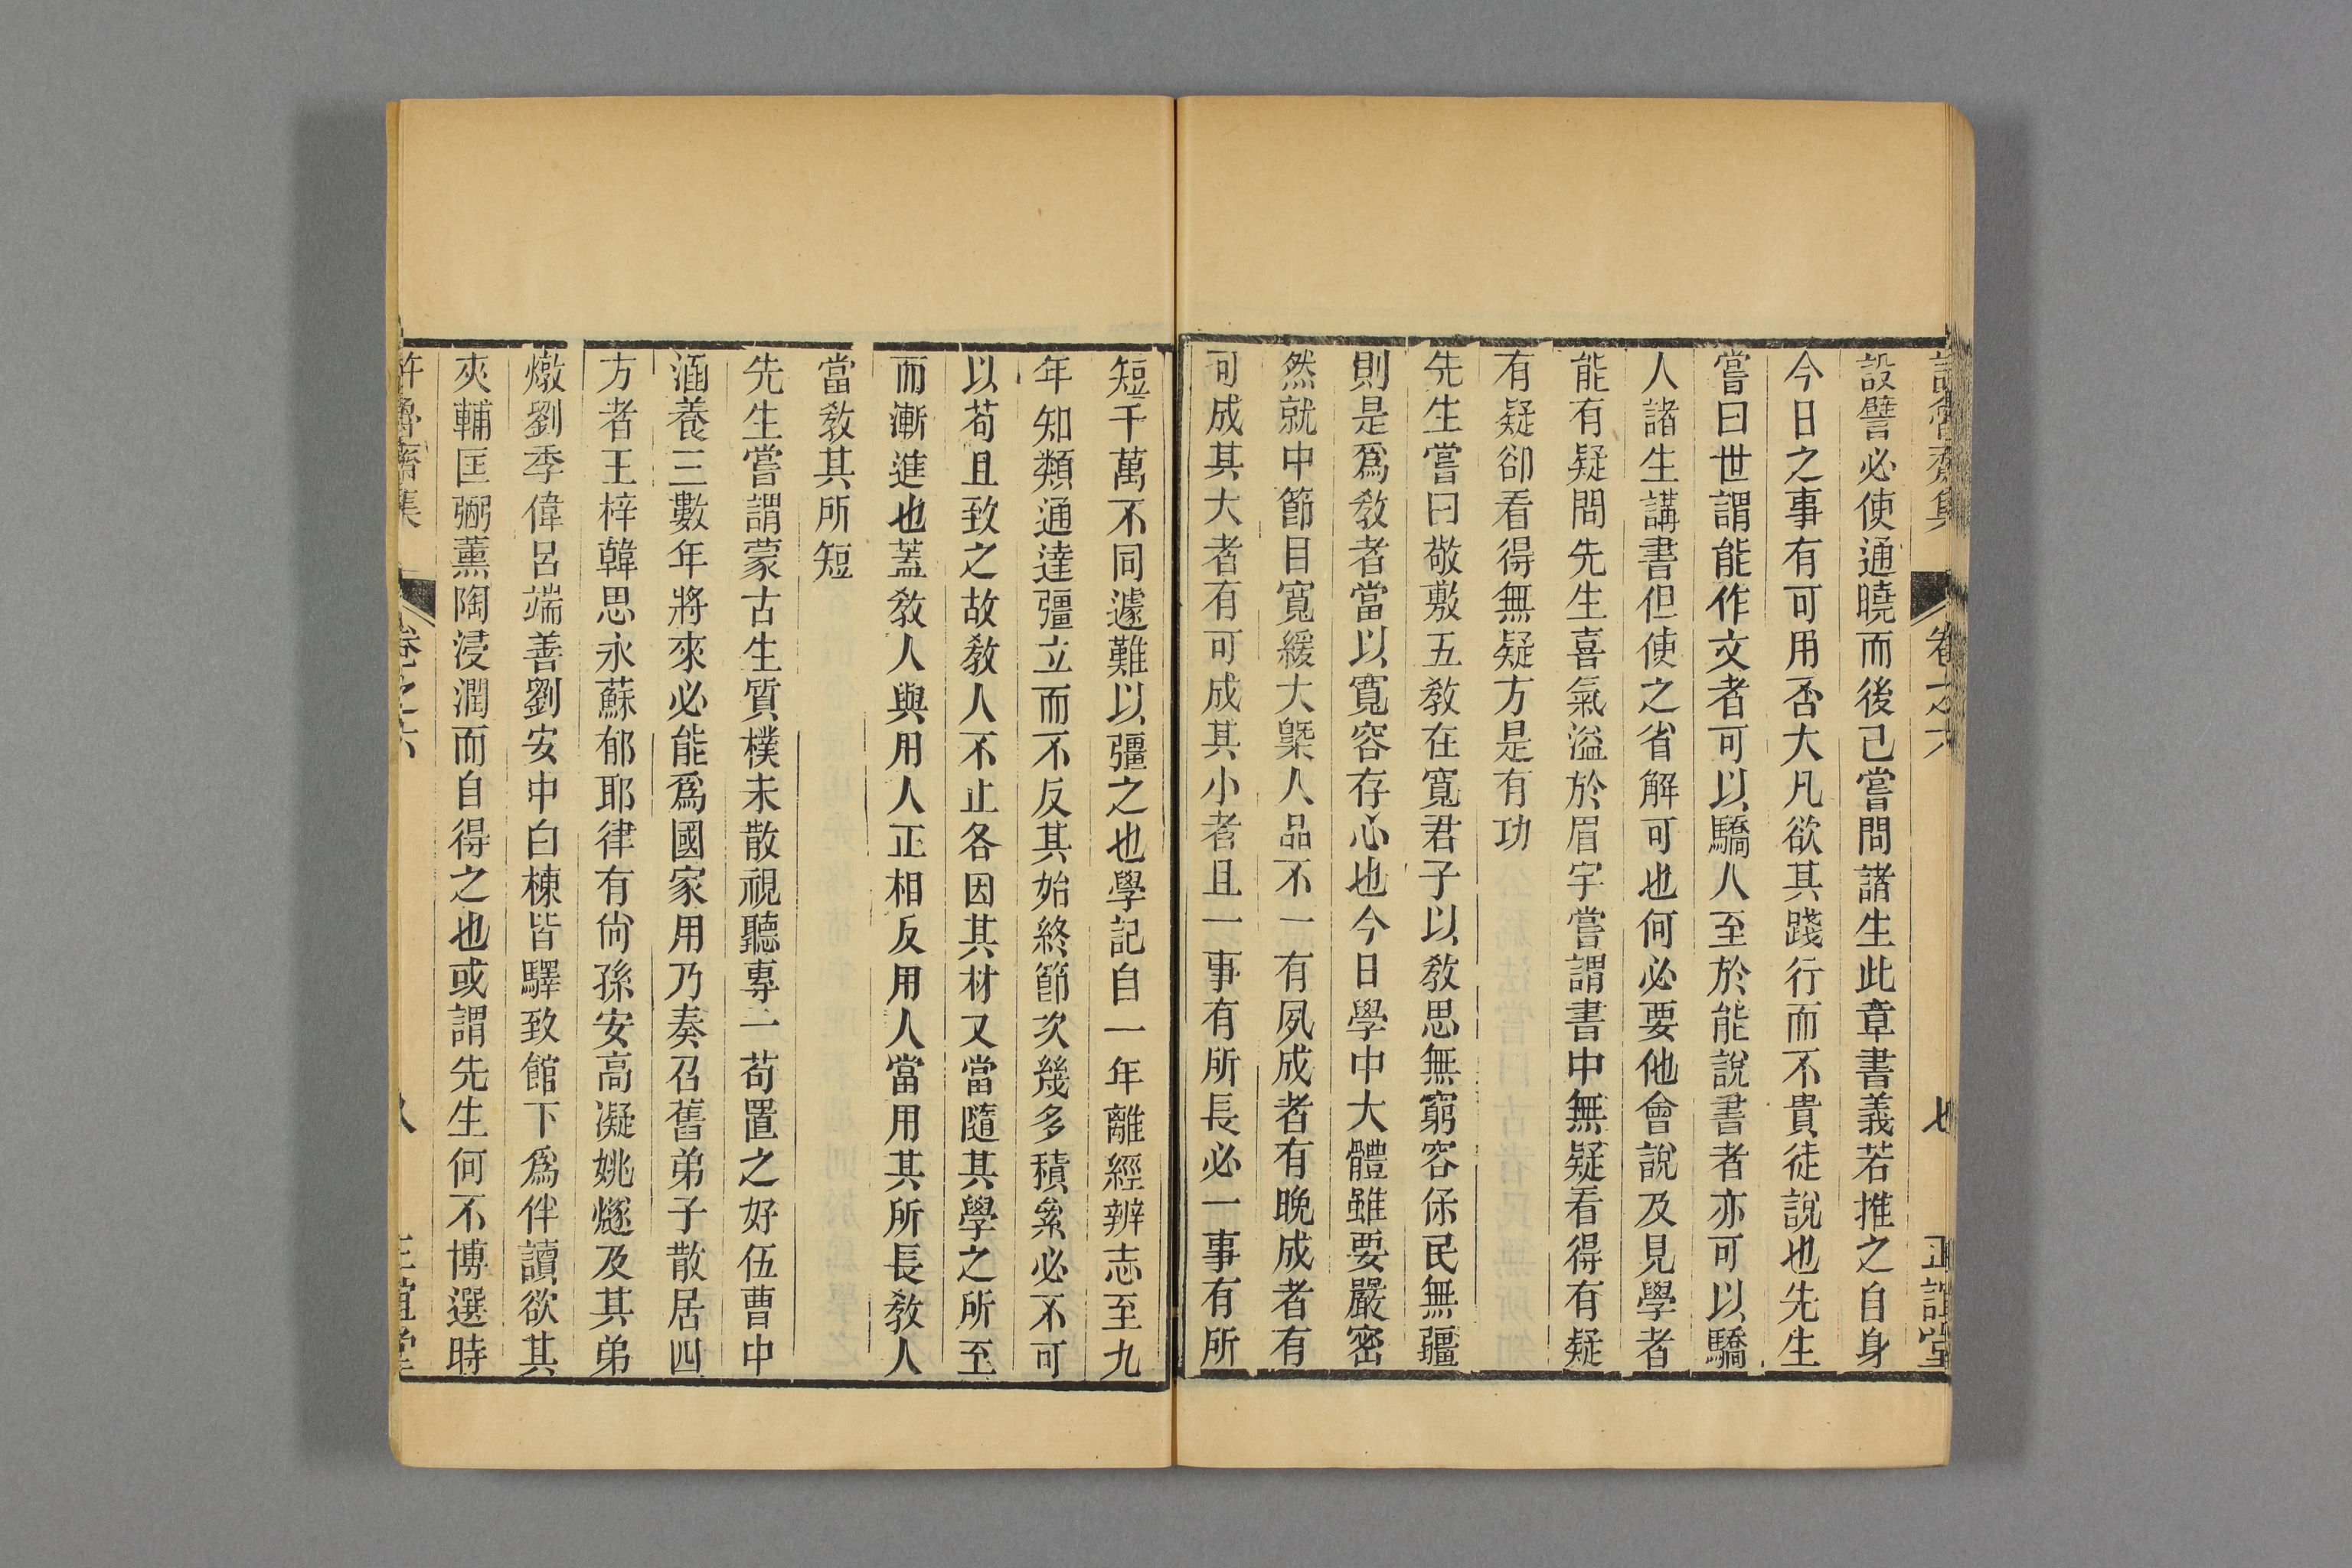 許魯齋集 卷之六 七 正誼堂
設譬必使通曉而後已嘗問諸生此章書義若推之自身
今日之事有可用否大凡欲其踐行而不貴徒說也先生
嘗曰世謂能作文者可以驕人至於能說書者亦可以驕
人諸生講書但使之省解可也何必要他會說及見學者
能有疑問先生喜氣溢於眉宇嘗謂書中無疑看得有疑
有疑卻看得無疑方是有功
先生嘗曰敬敷五敎在寬君子以敎思無窮容保民無疆
則是爲敎者當以寬容存心也今日學中大體雖要嚴密
然就中節目寬緩大槩人品不一有夙成者有晚成者有
可成其大者有可成其小者且一事有所長必一事有所
短千萬不同遽難以彊之也學記自一年離經辨志至九
年知類通達彊立而不反其始終節次幾多積絫必不可
以苟且致之故敎人不止各因其材又當隨其學之所至
而漸進也蓋敎人與用人正相反用人當用其所長敎人
當敎其所短
先生嘗謂蒙古生質樸未散視聽專一苟置之好伍曹中
涵養三數年將來必能爲國家用乃奏召舊弟子散居四
方者王梓韓思永蘇郁耶律有尙孫安高凝姚燧及其弟
燉劉季偉呂端善劉安中白棟皆驛致館下爲伴讀欲其
夾輔匡弼薰陶浸潤而自得之也或謂先生何不博選時
許魯齋集 卷之六 八 正誼堂